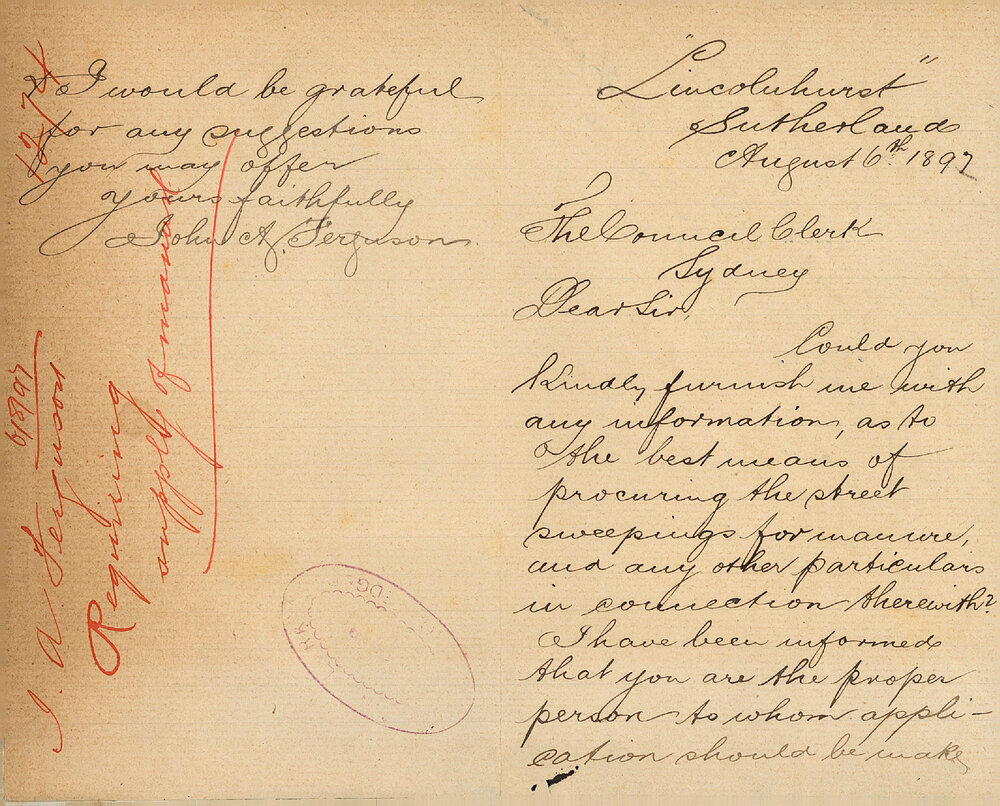 "Lincolnhurst"
Sutherland
August 6th 1897
The Council Clerk
Sydney
Dear Sir,
Could you
kindly furnish me with
any information, as to
the best means of
procuring the street
sweepings for manure,
and any other particulars
in connection therewith?
I have been informed
that you are the proper
person to whom appli-
cation should be make
& I would be grateful
for any suggestions
you may offer
yours faithfully
John A. Ferguson
J. A Ferguson
6/8/97
Requiring
supply of manure